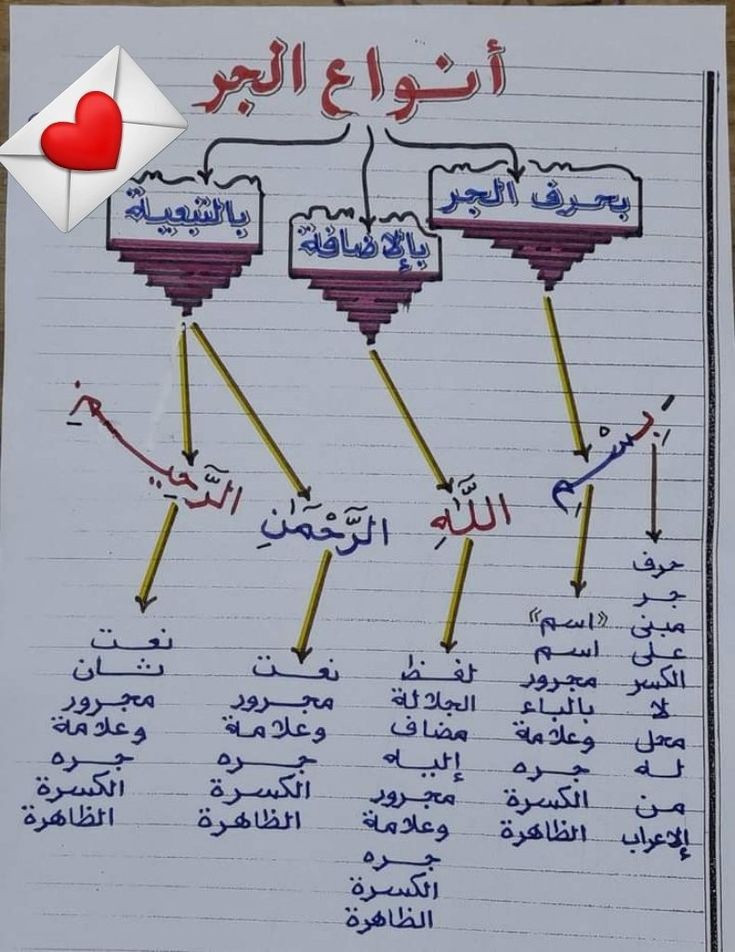 أنواع الجر
بحرف الجر
بالإضافة
بالتبعية
بِسْمِ
اللَّهِ
الرَّحْمَٰنِ
الرَّحِيمِ
حرف
جر
مبنى
على
الكسر
لا
محل
له
من
الإعراب
«اسم»
اسم
مجرور
بالباء
وعلامة
جره
الكسرة
الظاهرة
لفظ
الجلالة
مضاف
إليه
مجرور
وعلامة
جره
الكسرة
الظاهرة
نعت
مجرور
وعلامة
جره
الكسرة
الظاهرة
نعت
ثان
مجرور
وعلامة
جره
الكسرة
الظاهرة